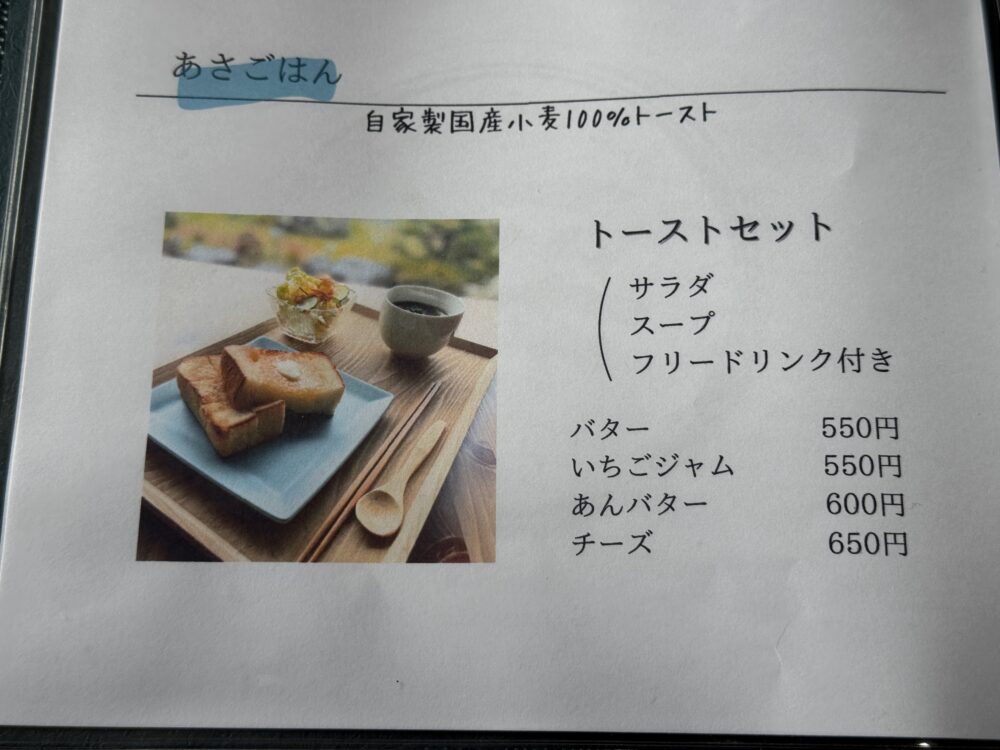 あさごはん
自家製国産小麦100%トースト
トーストセット
サラダ
スープ
フリードリンク付き
バター 550円
いちごジャム 550円
あんバター 600円
チーズ 650円